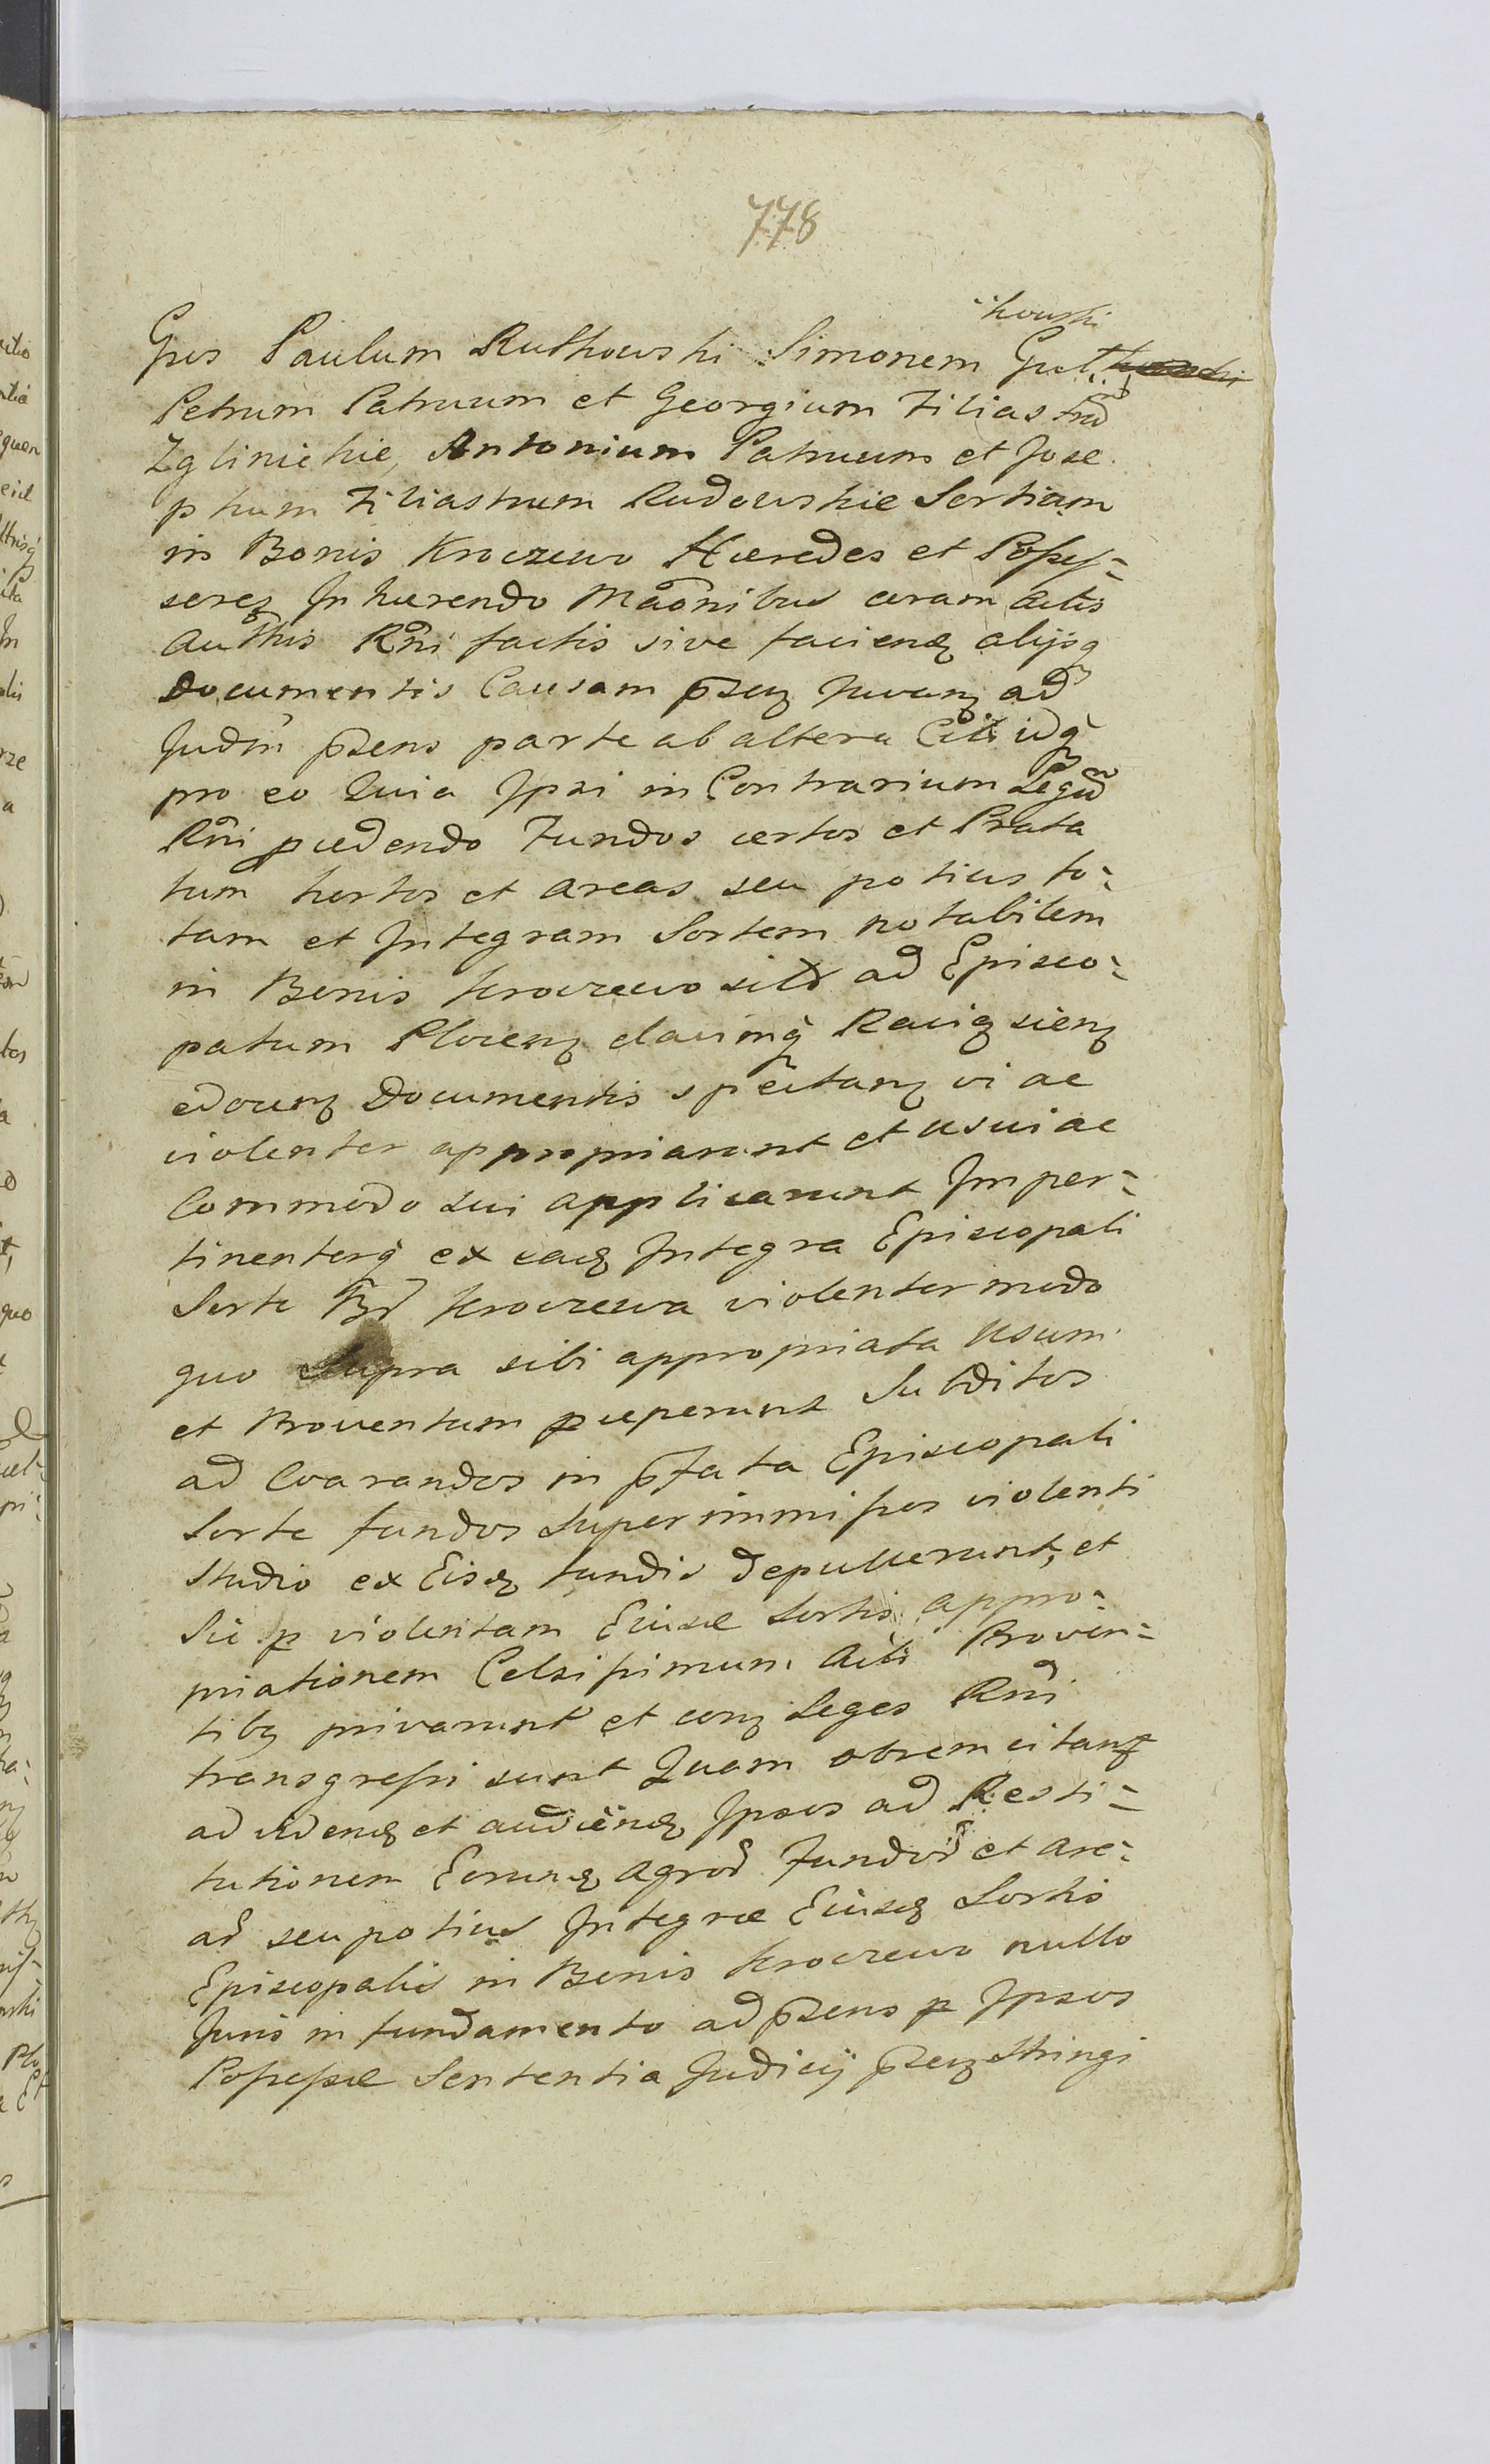 778
Gsos Paulum Rutkowski Simonem Gutkowski
Petrum Patruum et Georgium Filiastrũ
Zglinickie, Antonium Patruum et Jose
phum Filiastrum Rudowskie Sortium
in Bonis Kroczewo Hæredes et Possess=
sores Inhærendo Mãõnibus coram Actis
Autħis Rñi factis sive faciendꝫ alijsq
Documentis Causam p̃senꝫ juvanꝫ ad
Judm̃ p̃sens parte ab altera Citt idq
pro eo Quia Ipsi in Contrarium Legũ
Rñi pcedendo Fundos certos et Prata
tum hortos et areas seu potius to=
tam et Integram Sortem notabilem
in Bonis Kroczewo sitã ad Episco=
patum Plocenꝫ clavimq̃ Raciązienꝫ
edocenꝫ Documentis spectanꝫ vi ac
violenter appropriarunt et usui ac
Commodo sui applicarunt Imper=
tinenterq̃ ex eadꝫ Integra Episcopali
Sorte Bõ Kroczewa violenter modo
quo supra sibi appropriata Usum
et Proventum pceperunt Subditos
ad Coarandos in p̃fata Episcopali
Sorte fundos superimmissos violenti
studio ex Eisdꝫ fundis depullerunt, et
Sic p violentam Eiusd Sortis appro=
priationem Celsissimum Acti Proven=
tibꝫ privarunt et conꝫ Leges Rñi
transgressi sunt Quam obrem citanꝫ
ad videndꝫ et audiendꝫ Ipsos ad Resti=
tutionem Eorundꝫ agroꝝ Fundoꝝ et are=
aꝝ seu potius Integræ Eiusdꝫ Sortis
Episcopalis in Bonis Kroczewo nullo
Juris in fundamento ad p̃sens p Ipsos
Possessæ Sententia Judicij p̃senꝫ stringi